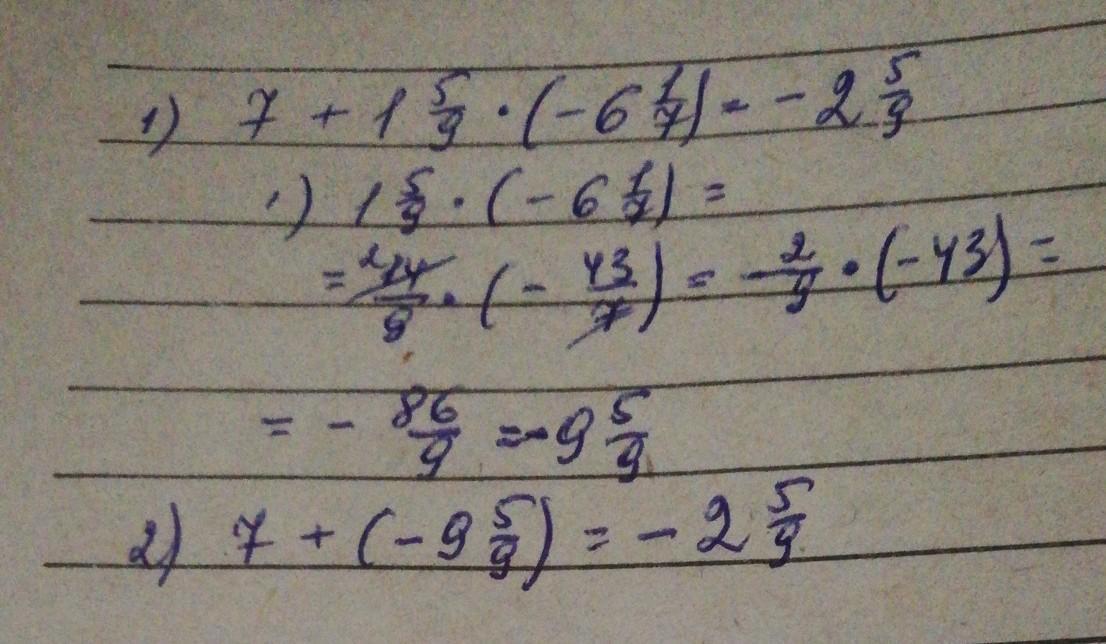 1) 7 + 1 5/9 · (- 6 1/7) = - 2 5/9
1) 1 5/9 · (- 6 1/7) =
= 14/9 · (- 43/7) = - 2/9 · (- 43) =
= - 86/9 = - 9 5/9
2) 7 + (- 9 5/9) = - 2 5/9